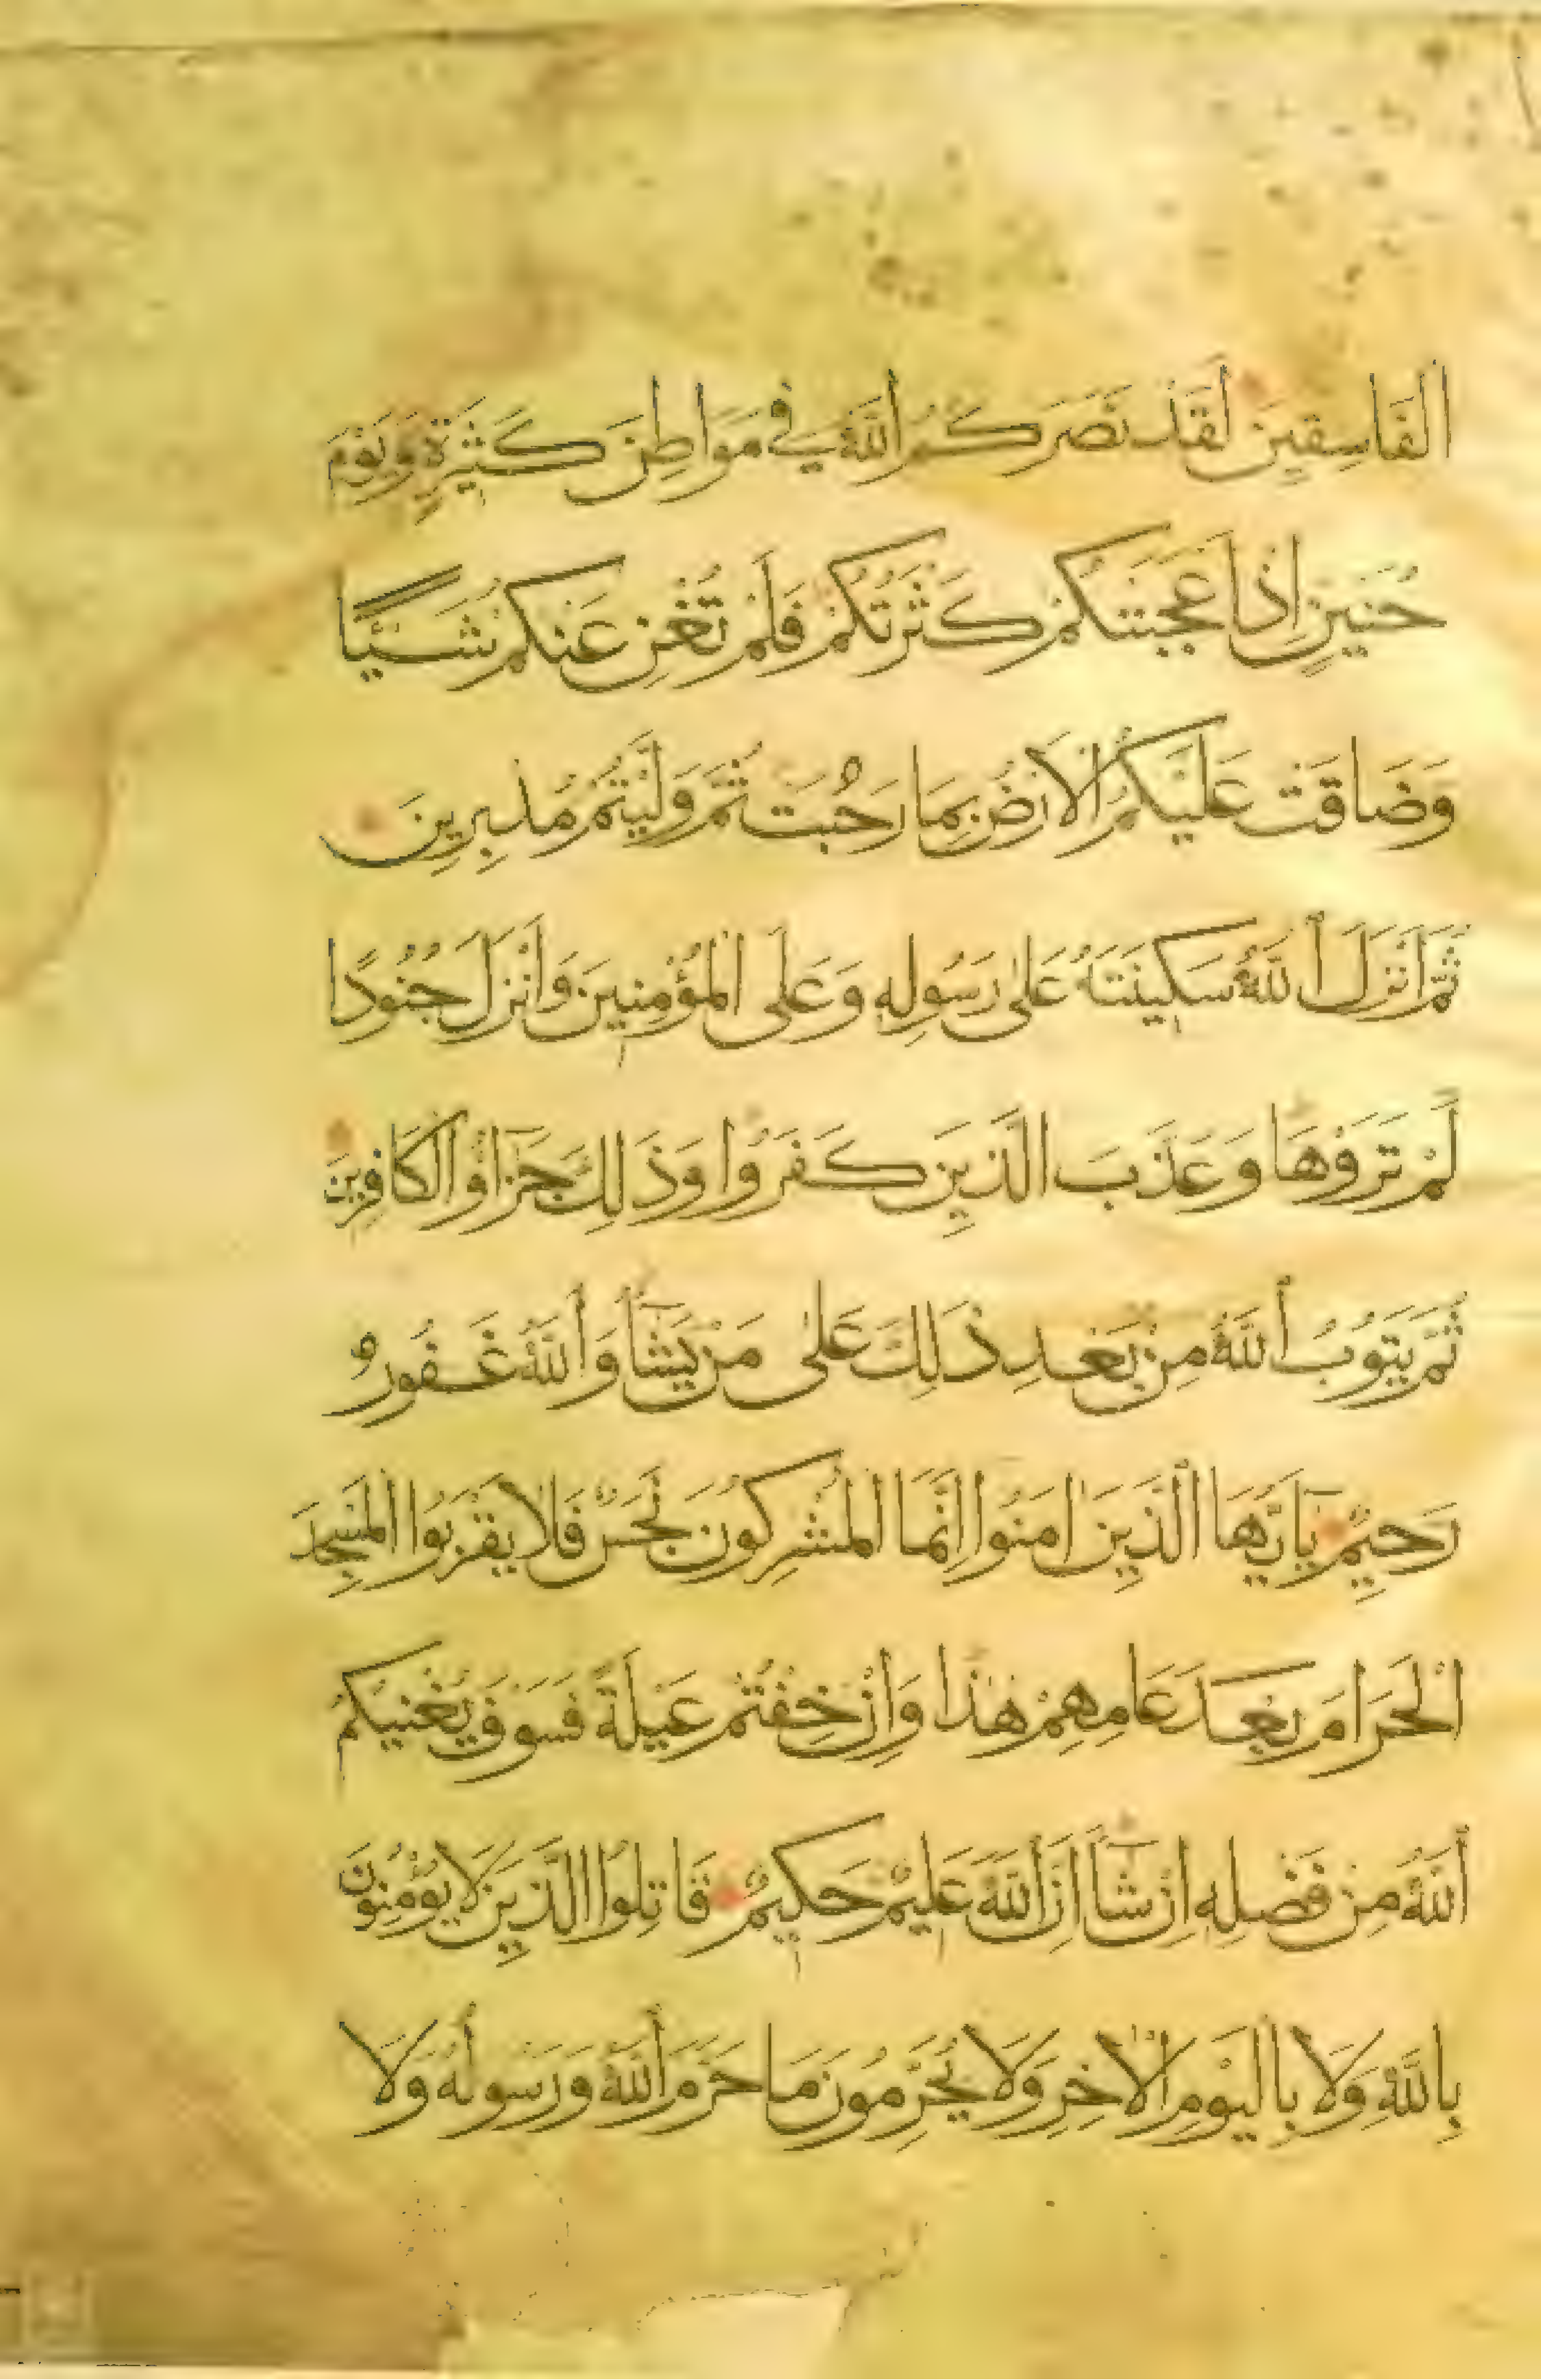 الفَاسِقِينَ لَقَدْ نَصَرَكُمُ اللَّهُ فِي مَوَاطِنَ كَثِيرَةٍ وَيَوْمَ
حُنَيْنٍ إِذْ اَعْجَبَتْكُمْ كَثْرَتُكُمْ فَلَمْ تُغْنِ عَنْكُمْ شَيْئًا
وَضَاقَتْ عَلَيْكُمُ الْاَرْضُ بِمَا رَحُبَتْ ثُمَّ وَلَّيْتُمْ مُدْبِرِينَ
ثُمَّ اَنْزَلَ اللَّهُ سَكِينَتَهُ عَلَى رَسُولِهِ وَعَلَى الْمُؤْمِنِينَ وَاَنْزَلَ جُنُودًا
لَمْ تَرَوْهَا وَعَذَّبَ الَّذِينَ كَفَرُوا وَذَلِكَ جَزَاؤُ الْكَافِرِينَ
ثُمَّ يَتُوبُ اللَّهُ مِنْ بَعْدِ ذَلِكَ عَلَى مَنْ يَشَاءُ وَاللَّهُ غَفُورٌ
رَحِيمٌ يَا اَيُّهَا الَّذِينَ اٰمَنُوا اِنَّمَا الْمُشْرِكُونَ نَجَسٌ فَلَا يَقْرَبُوا الْمَسْجِدَ
الْحَرَامَ بَعْدَ عَامِهِمْ هٰذَا وَاِنْ خِفْتُمْ عَيْلَةً فَسَوْفَ يُغْنِيكُمُ
اللَّهُ مِنْ فَضْلِهِ اِنْ شَاءَ اِنَّ اللَّهَ عَلِيمٌ حَكِيمٌ قَاتِلُوا الَّذِينَ لَا يُؤْمِنُونَ
بِاللَّهِ وَلَا بِالْيَوْمِ الْاٰخِرِ وَلَا يُحَرِّمُونَ مَا حَرَّمَ اللَّهُ وَرَسُولُهُ وَلَا